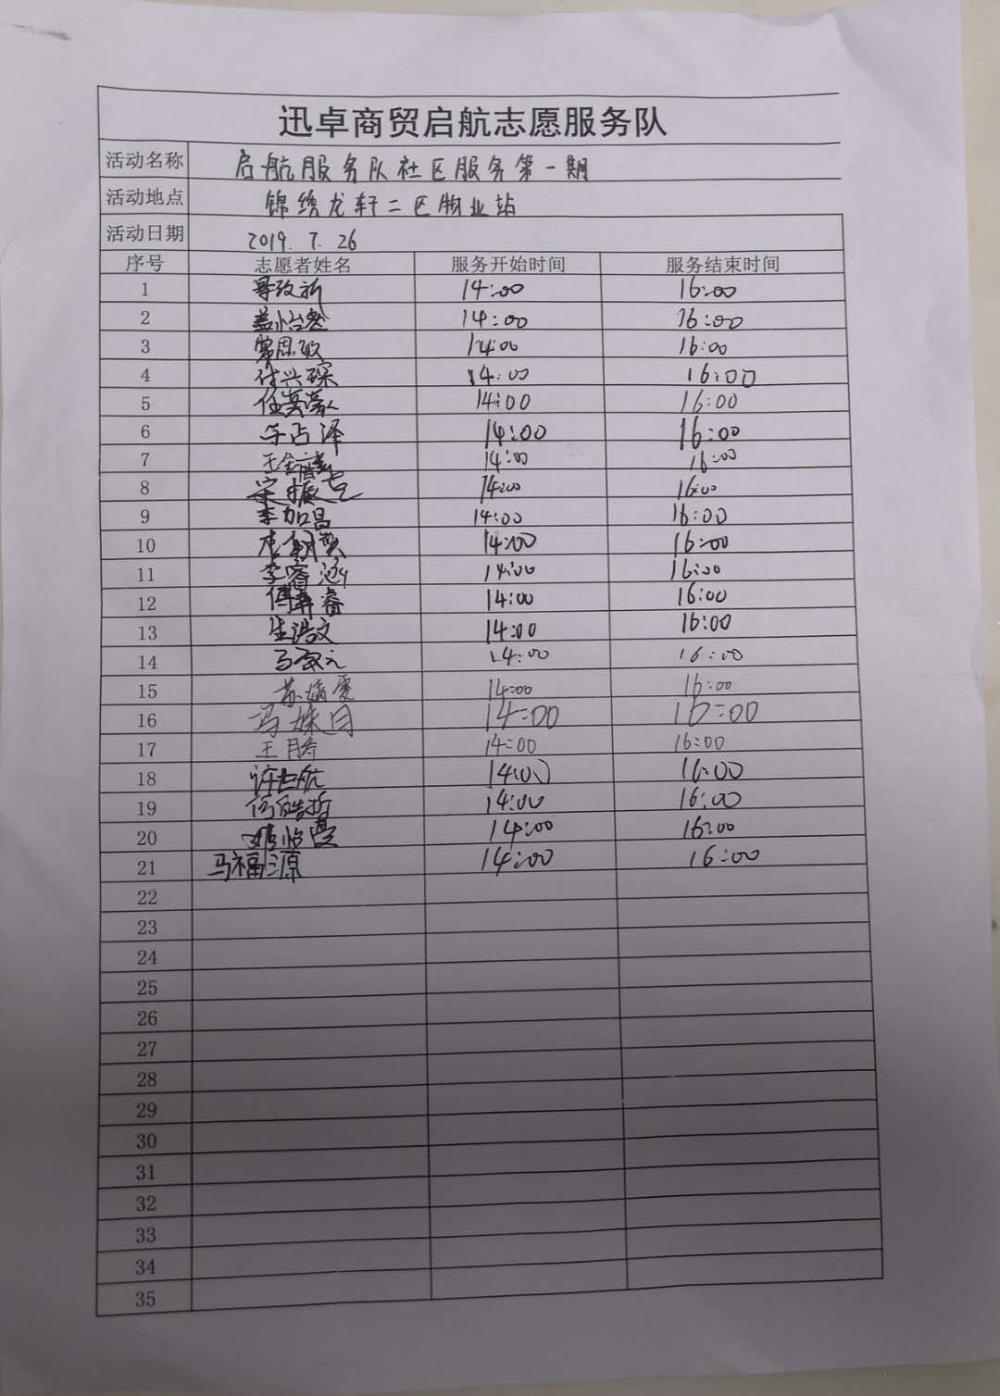 迅卓商贸启航志愿服务队
活动名称 启航服务队社区服务第一期
活动地点 锦绣龙轩二区物业站
活动日期 2019.7.26
序号 志愿者姓名 服务开始时间 服务结束时间
1 14:00 16:00
2 14:00 16:00
3 14:00 16:00
4 付兴琛 14:00 16:00
5 14:00 16:00
6 14:00 16:00
7 14:00 16:00
8 14:00 16:00
9 李加昌 14:00 16:00
10 14:00 16:00
11 李睿涵 14:00 16:00
12 14:00 16:00
13 生浩文 14:00 16:00
14 14:00 16:00
15 14:00 16:00
16 冯姝月 14:00 16:00
17 14:00 16:00
18 14:00 16:00
19 何皓哲 14:00 16:00
20 14:00 16:00
21 马福源 14:00 16:00
22
23
24
25
26
27
28
29
30
31
32
33
34
35